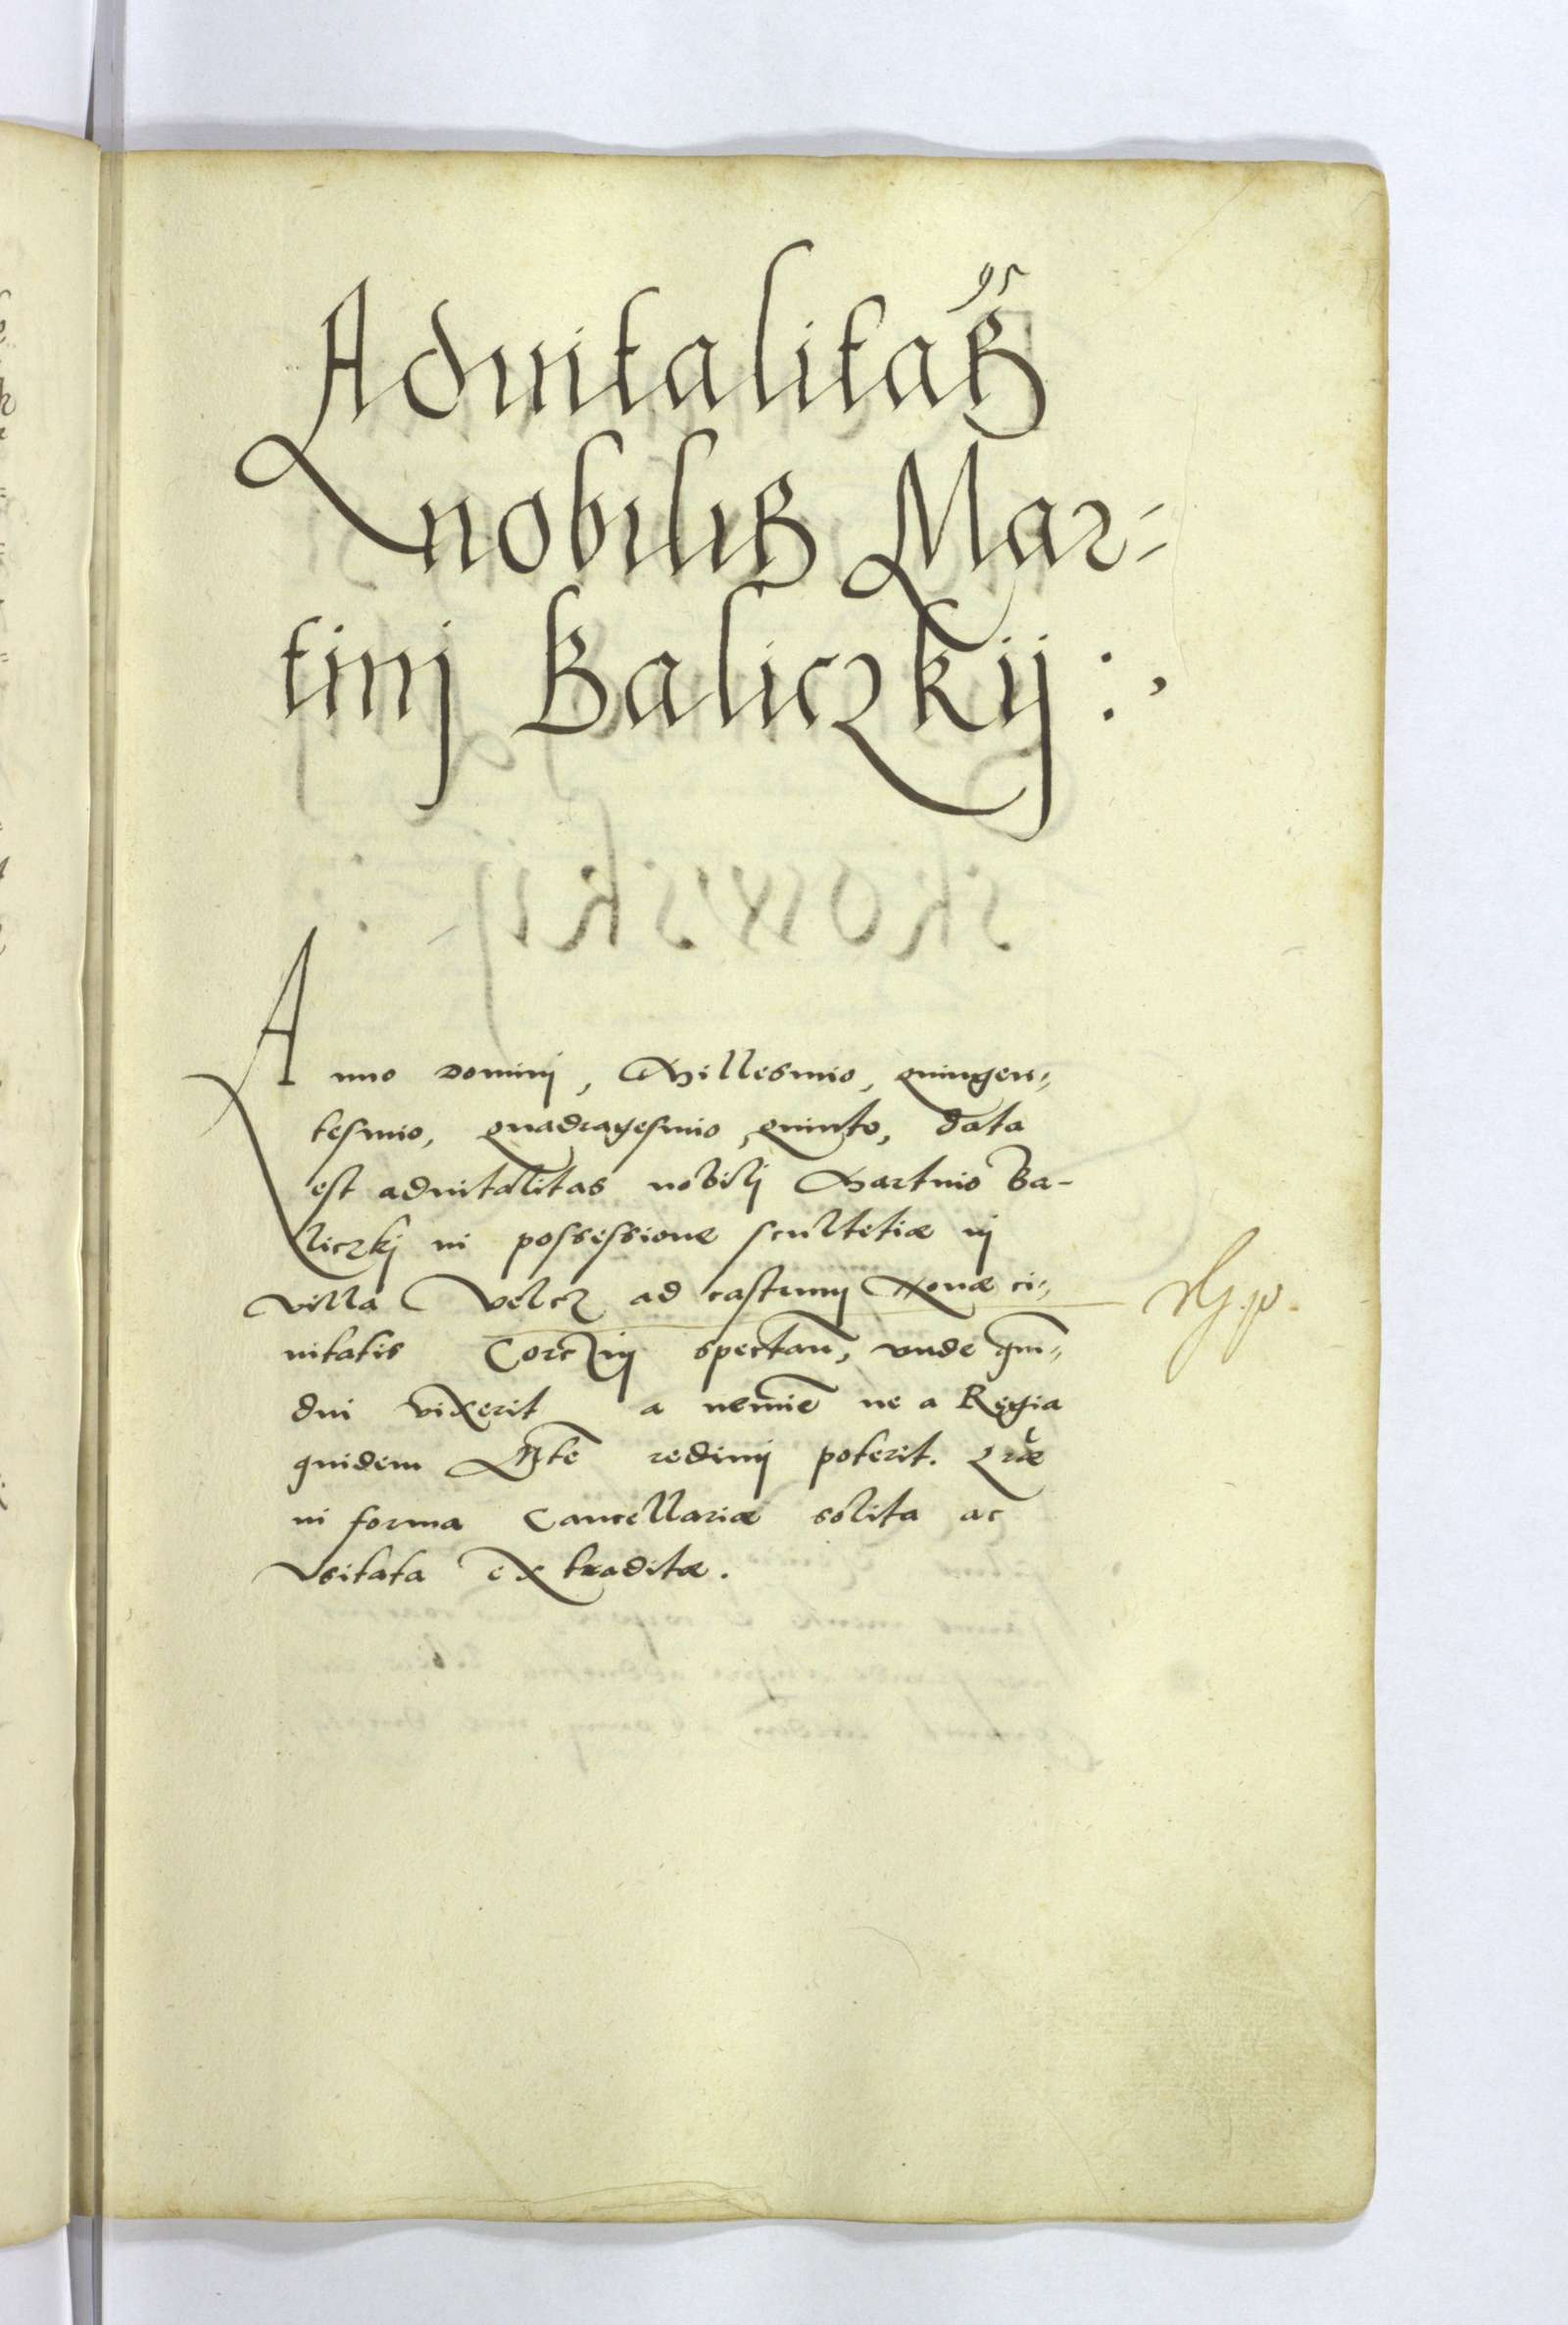 95
Aduitalitas
nobilis Mar=
tinj Baliczkij :,
Anno Dominj, Millesimo, quingen=
tesimo, quadragesimo, quinto, data
est aduitalitas nobilj Martino Ba-
liczkj in possessione scultetiæ in
villa Velcz ad castrum Nouæ ci=
uitatis Corczin spectan̄, vnde qm̄=
diu vixerit a nemīe ne a Regia
quidem Mte redimj poterit. Lræ
in forma Cancellariæ solita ac
vsitata ex traditæ.